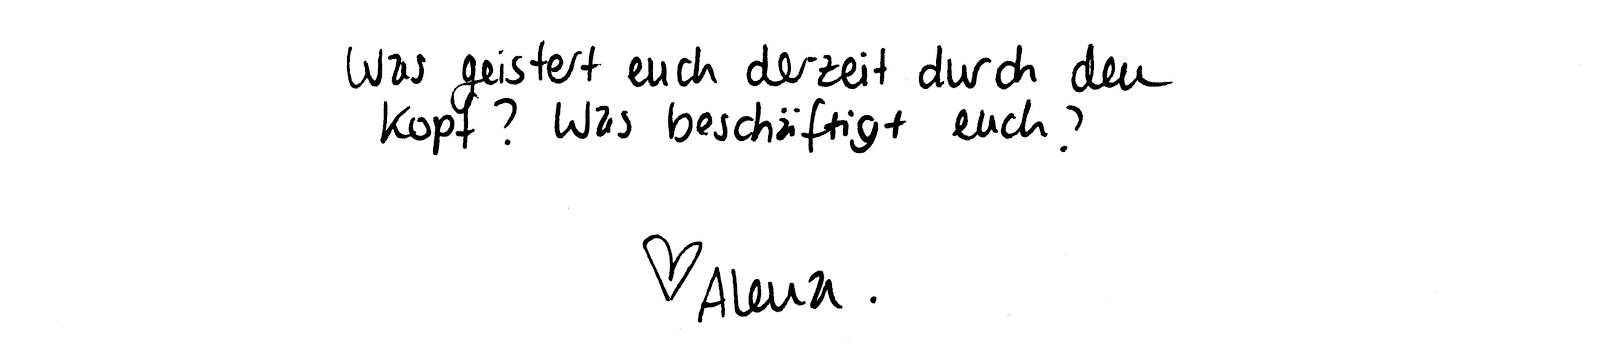 Was geistert euch derzeit durch den
Kopf? Was beschäftigt euch?
♡ Alena.